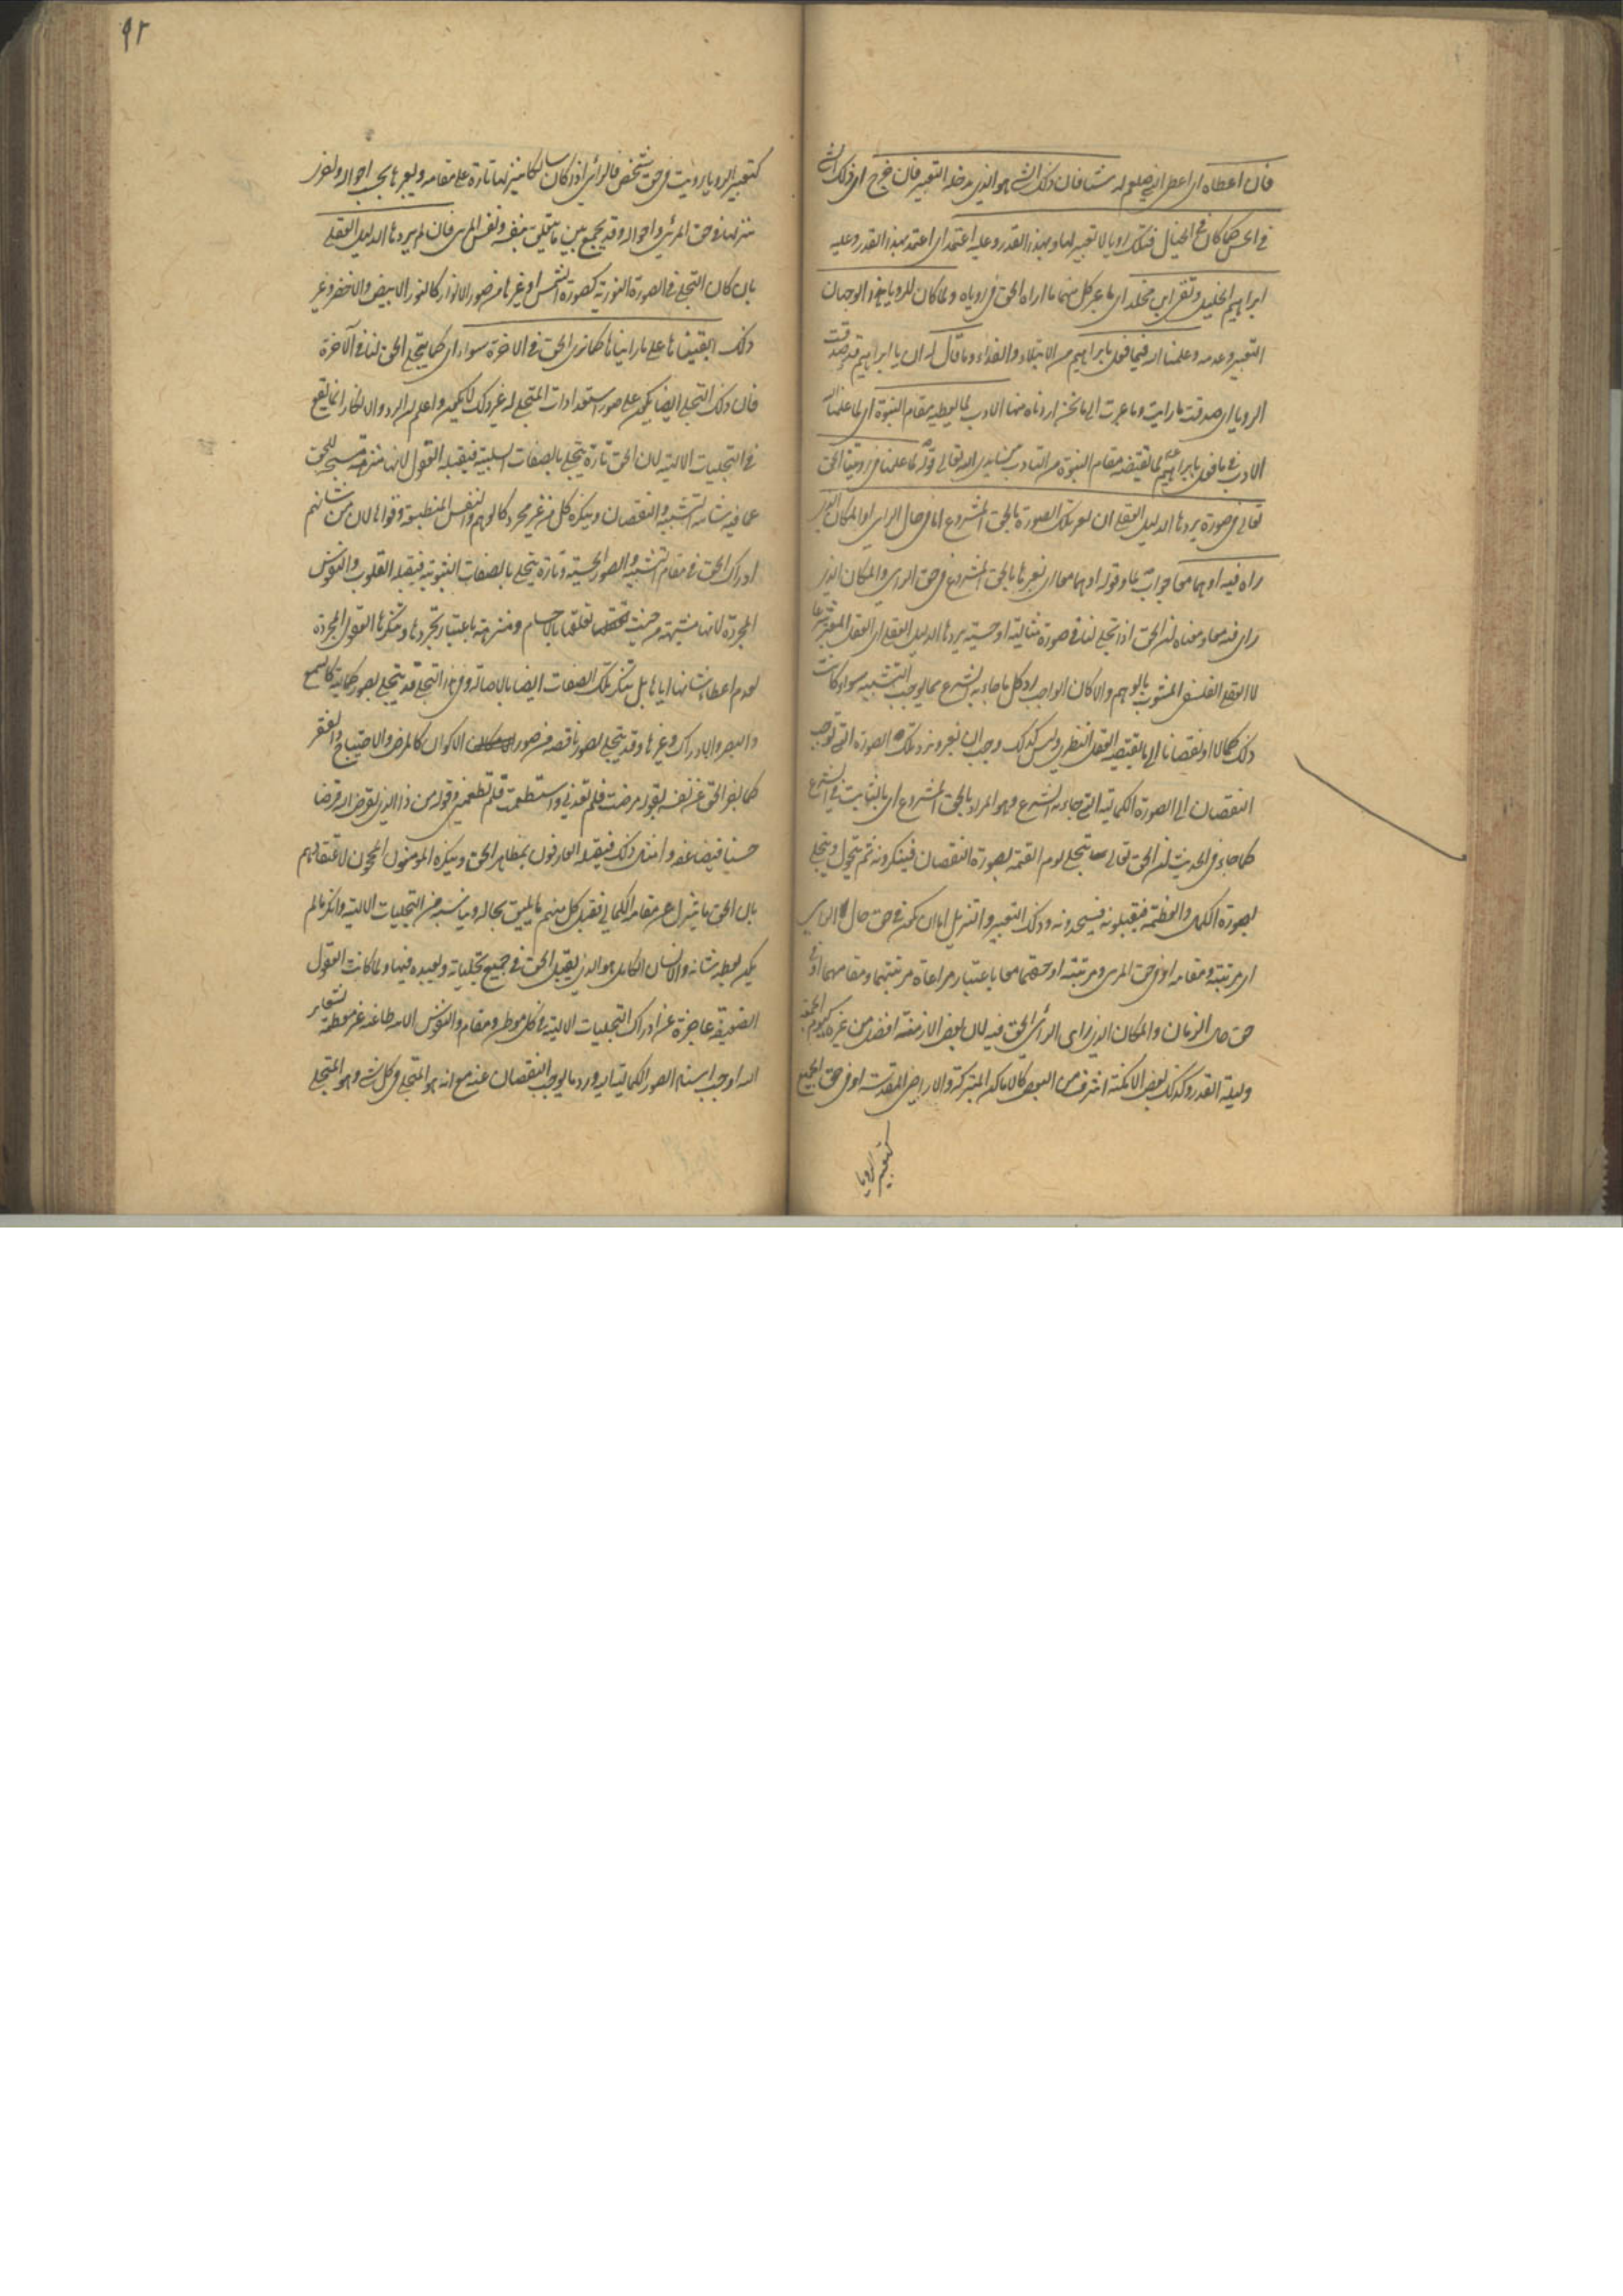 فان اعطاه ای اعطی النبی صلعم له شیئا فان ذلک الشی هو الذی یدخله التعبیر فان خرج ای ذلک الشی
فی الحس کما کان فی الخیال فتلک رویا لا تعبیر لها و بهذا القدر و علیه اعتمد ای اعتمد بهذا القدر و علیه
ابراهیم الخلیل و تقی ابن مخلد ای ما عبر کل منهما ما اراه الحق فی رویاه و لما کان للرویا هذا الوجهان
التعبیر و عدمه و علمنا الله فیما فعل بابراهیم من الابتلاء و الفداء و ما قال له ان یا ابراهیم قد صدقت
الرویا ای صدقت ما رایت و ما عبرت الی ما نحن اردناه منها الادب لما یعطیه مقام النبوة ای لما علمنا الله
الادب فی ما فعل بابراهیم لما تقتضیه مقام النبوة من التادب بین یدی الله تعالی قوله لما علمنا فی رویتنا الحق
تعالی فی صورة یردها الدلیل العقلی ان نعبر تلک الصورة بالحق المشروع اما فی حال الرای او المکان الذی
راه فیه او هما معا جواب لما و قوله او هما معا ای نعبرها بالحق المشروع فی حق الرای و المکان الذی
رای فیه معا و معناه ان الحق اذا تجلی لنا فی صورة مثالیة او حسیة یردها الدلیل العقلی ای العقل المنور شرعا
لا العقل الفلسفی المشوب بالوهم و الا کان الواجب رد کل ما جاء به الشرع مما یوجب التشبیه سواء کانت
ذلک کمالا او نقصانا الی ما یقتضیه العقل النظری و لیس کذلک وجب ان نعبر و نرد تلک الصورة التی توجب
النقصان الی الصورة الکمالیة التی جاء به الشرع و هو المراد بالحق المشروع ای بالثابت فی الشرع
کما جاء فی الحدیث ان الحق تعالی یتجلی یوم القیمة بصورة النقصان فینکرونه ثم یتحول و یتجلی
بصورة الکمال و العظمة فیقبلونه فیسجدونه و ذلک التعبیر و التنزیل اما ان یکون فی حق حال الرای
ای مرتبته و مقامه او فی حق المرئی و مرتبته او حقهما معا باعتبار مراعاة مرتبتهما و مقامهما او فی
حق الزمان و المکان الذی رای الرائی الحق فیه لان بعض الازمنة افضل من غیره کیوم الجمعة
و لیلة القدر و کذلک بعض الامکنة اشرف من البعض کالاماکن المتبرکة و الاراضی المقدسة او فی حق الجمیع
کتعبیر الرویا
۹۲
کتعبیر الرویا رویت فی حق شخص فالرائی اذا کان سالکا ینزلها تارة علی مقامه و یعبرها بحسب احواله و اخری
ینزلها فی حق المرئی و احواله و قد یجمع بین ما یتعلق بنفسه و نفس المرئی فان لم یردها الدلیل العقلی
بان کان التجلی فی الصورة النوریة کصورة الشمس او غیرها من صور الانوار کالنور الابیض و الاخضر و غیر
ذلک ابقیناها علی ما رایناها کما نری الحق فی الاخرة سواء ای کما یتجلی الحق لنا فی الاخرة
فان ذلک التجلی ایضا یکون علی صور استعدادات المتجلی له غیر ذلک لا یکون و اعلم ان الرد و الانکار انما یقع
فی التجلیات الالهیة لان الحق تارة یتجلی بالصفات السلبیة فیقبله العقول لانها منزهة مسبحة للحق
عما فیه شائبة التشبیه و النقصان و ینکره کل من غیر مجرد کالوهم و النفس المنطبعة و قواها لان من شانهم
ادراک الحق فی مقام التشبیه و الصور الحسیة و تارة یتجلی بالصفات الثبوتیة فیقبله القلوب و النفوس
المجردة لانها مشبهة من حیث تعلقها بالاجسام و منزهة باعتبار تجردها و ینکرها العقول المجردة
لعدم اعطاء شانها ایاها بل تنکر تلک الصفات ایضا بالاصالة و فی هذا التجلی قد یتجلی بصور کمالیة کالسمع
و البصر و الادراک و غیرها و قد یتجلی بصور ناقصة من صور الاکوان کالمرض و الاحتیاج و الفقر
کما اخبر الحق عن نفسه بقوله مرضت فلم تعدنی و استطعمت فلم تطعمنی و قوله من ذا الذی یقرض الله قرضا
حسنا فیضاعفه و امثال ذلک فیقبله العارفون بمظاهر الحق و ینکره المومنون المحجوبون لاعتقادهم
بان الحق ما یتنزل عن مقامه الکمالی فقبل کل منهم ما یلیق بحاله و یناسبه من التجلیات الالهیة و انکر ما لم
یکن یعطیه شانه و الانسان الکامل هو الذی یقبل الحق فی جمیع تجلیاته و یعبده فیها و لما کانت العقول
الضعیفة عاجزة عن ادراک التجلیات الالهیة فی کل موطن و مقام و النفوس الابیة طاغیة غیر معظمة لشعائر
الله اوجب اسناد الصور الکمالیة الیه و رد ما یوجب النقصان عنه مع انه هو المتجلی فی کل شی و هو المتجلی